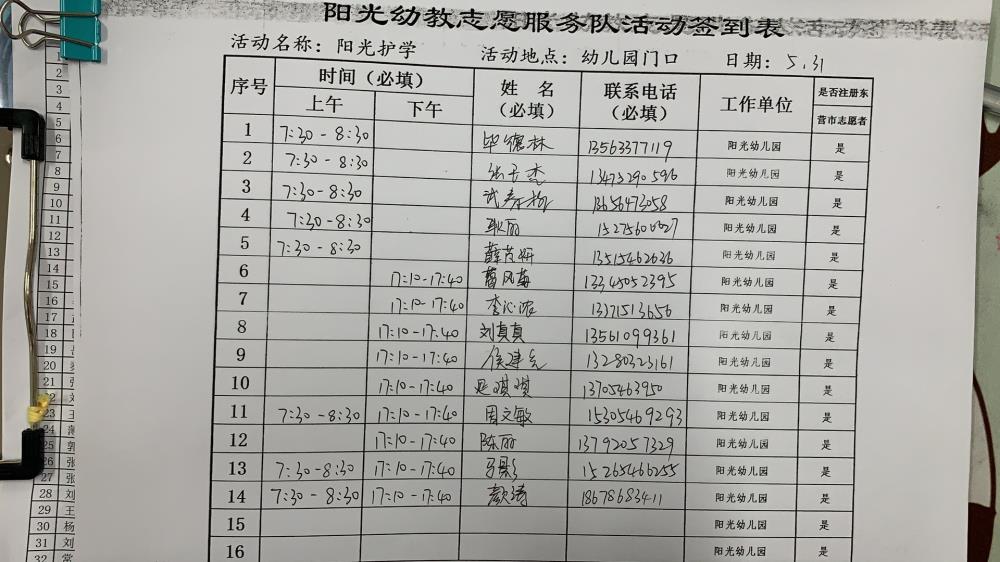 阳光幼教志愿服务队活动签到表
活动名称：阳光护学 活动地点：幼儿园门口 日期：5.31
序号 时间（必填） 姓名（必填） 联系电话（必填） 工作单位 是否注册东营市志愿者
上午 下午
1 7:30-8:30 毕德林 13563377119 阳光幼儿园 是
2 7:30-8:30 张长杰 13473290596 阳光幼儿园 是
3 7:30-8:30 试春梅 13656473058 阳光幼儿园 是
4 7:30-8:30 耿丽 15275600627 阳光幼儿园 是
5 7:30-8:30 薛芮妍 13515462636 阳光幼儿园 是
6 17:10-17:40 曹风英 13345052395 阳光幼儿园 是
7 17:10-17:40 李沁浓 13371513656 阳光幼儿园 是
8 17:10-17:40 刘真真 13561099361 阳光幼儿园 是
9 17:10-17:40 侯建 13280323161 阳光幼儿园 是
10 17:10-17:40 琪琪 13705463950 阳光幼儿园 是
11 7:30-8:30 17:10-17:40 周文敏 15305469293 阳光幼儿园 是
12 17:10-17:40 陈丽 13792057329 阳光幼儿园 是
13 7:30-8:30 17:10-17:40 15265466255 阳光幼儿园 是
14 7:30-8:30 17:10-17:40 18678683411 阳光幼儿园 是
15 阳光幼儿园 是
16 阳光幼儿园 是
1
2
3
4
5
6
7
8
9
10
11
12
13
14
15
16
17
18
19
20
21 张
22 刘
23 王
24
25 郭
26 张
27 张
28 刘
29 王
30 杨
31 刘
32 常